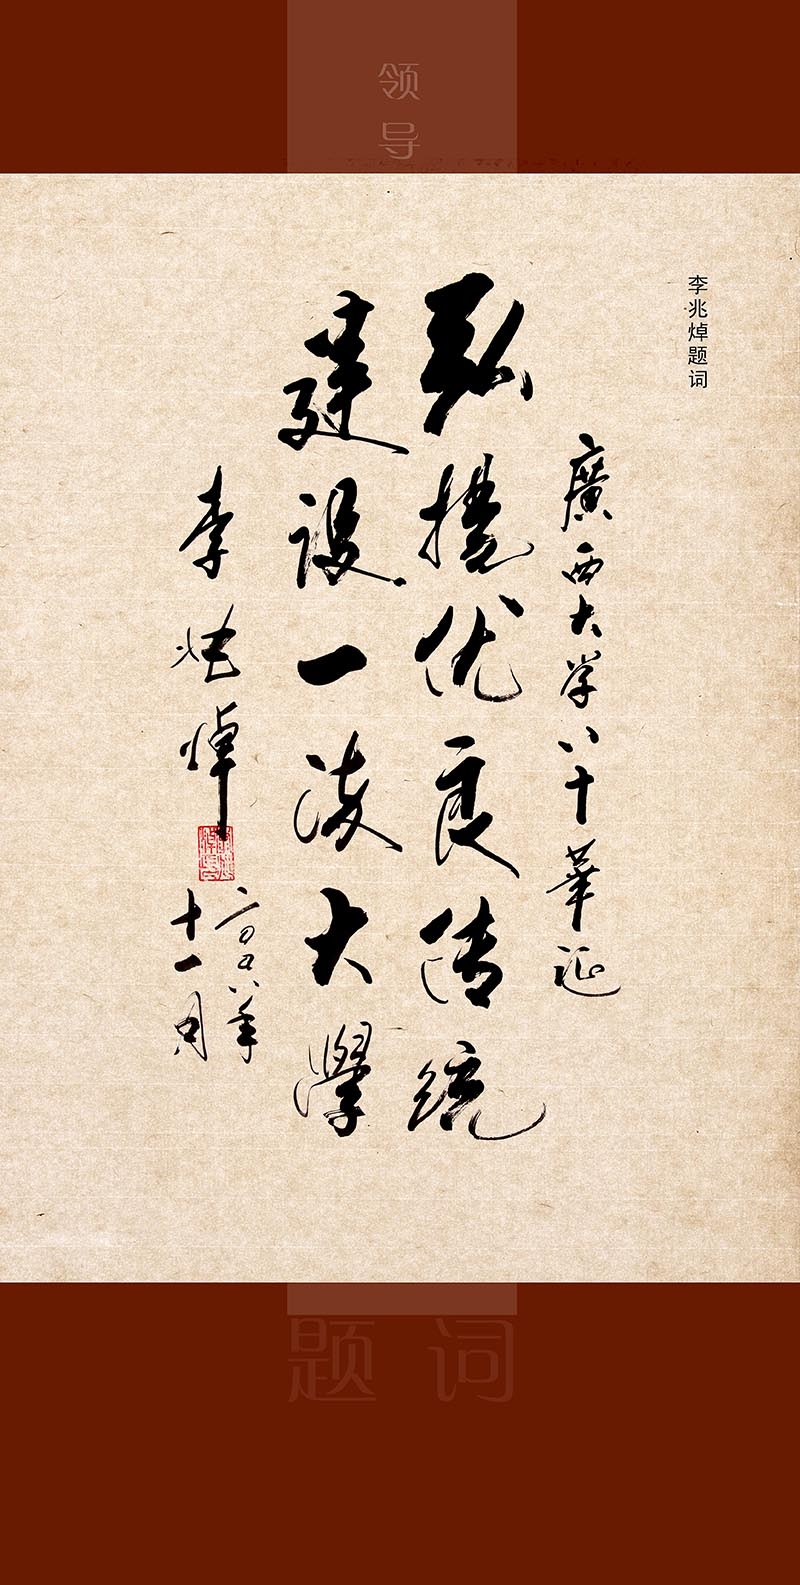 领导
李兆焯题词
廣西大学八十華诞
弘扬优良传统
建设一流大學
李兆焯
二〇〇八年
十一月
题词